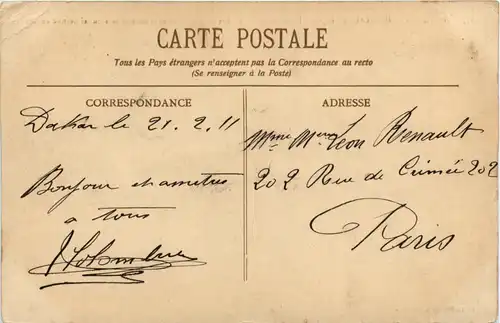 CARTE POSTALE
Tous les Pays étrangers n'acceptent pas la Correspondance au recto
(Se renseigner à la Poste)
CORRESPONDANCE
ADRESSE
Dakar le 21.2.11
Bonjour et
a tous
Léon Renault
202 Rue de Crimée 202
Paris